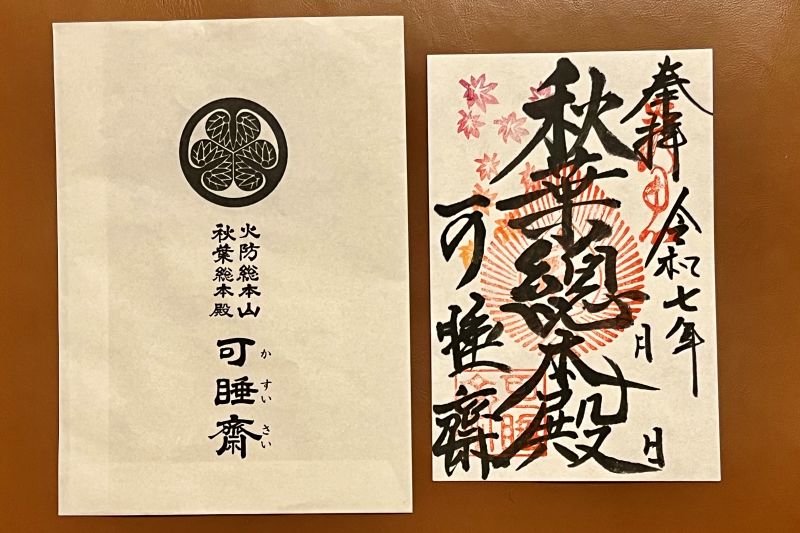 火防総本山
秋葉総本殿
可睡齋
かすいさい
奉拝
令和七年
月
日
秋葉總本殿
可睡齋